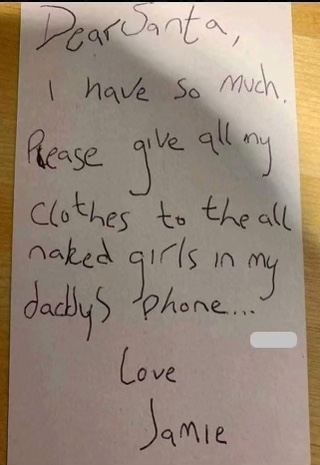 Dear Santa,
I have so much.
Please give all my
clothes to the all
naked girls in my
daddys phone...
Love
Jamie